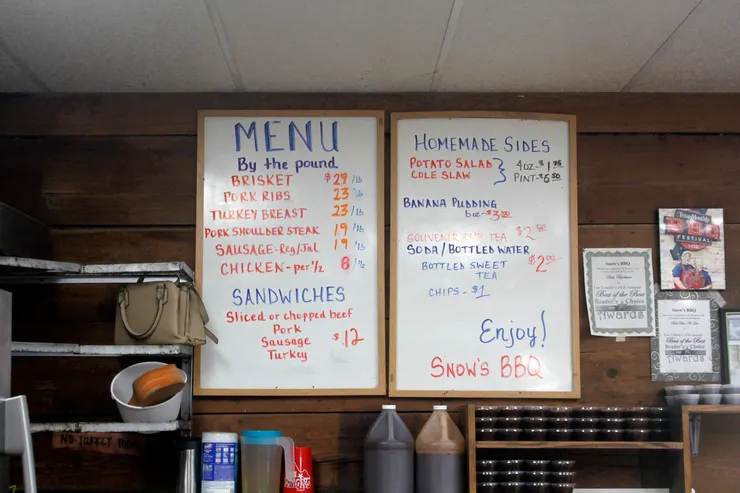 MENU
By the pound
BRISKET $29/lb
PORK RIBS 23
TURKEY BREAST 23/lb
PORK SHOULDER STEAK 19/lb
SAUSAGE-Reg/Jal 19/lb
CHICKEN-per 1/2 8/½
SANDWICHES
Sliced or chopped beef
Pork
Sausage
Turkey
$12
HOMEMADE SIDES
POTATO SALAD
COLE SLAW
4oz-$1.75
PINT-$6.50
BANANA PUDDING
6oz-$3.50
SOUVENIR CUP TEA
SODA/BOTTLED WATER
BOTTLED SWEET
TEA
$2.00
CHIPS-$1
Enjoy!
SNOW'S BBQ
Texas Monthly
BBQ
FESTIVAL
Snow's BBQ
Best of the Best
Reader's Choice
Awards
Snow's BBQ
Awards
NO TURKEY